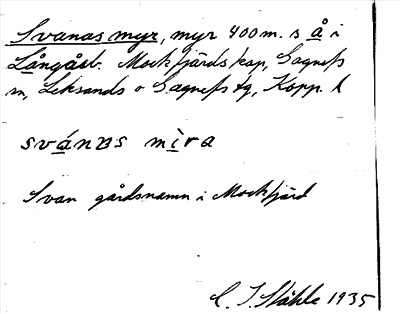 Svanas myr, myr 400 m. s å i
Långåsb. Mockfjärds kap, Gagnefs
sn, Leksands o Gagnefs tg, Kopp. l
svánas mìra
Svan gårdsnamn i Mockfjärd
C. I. Ståhle 1935